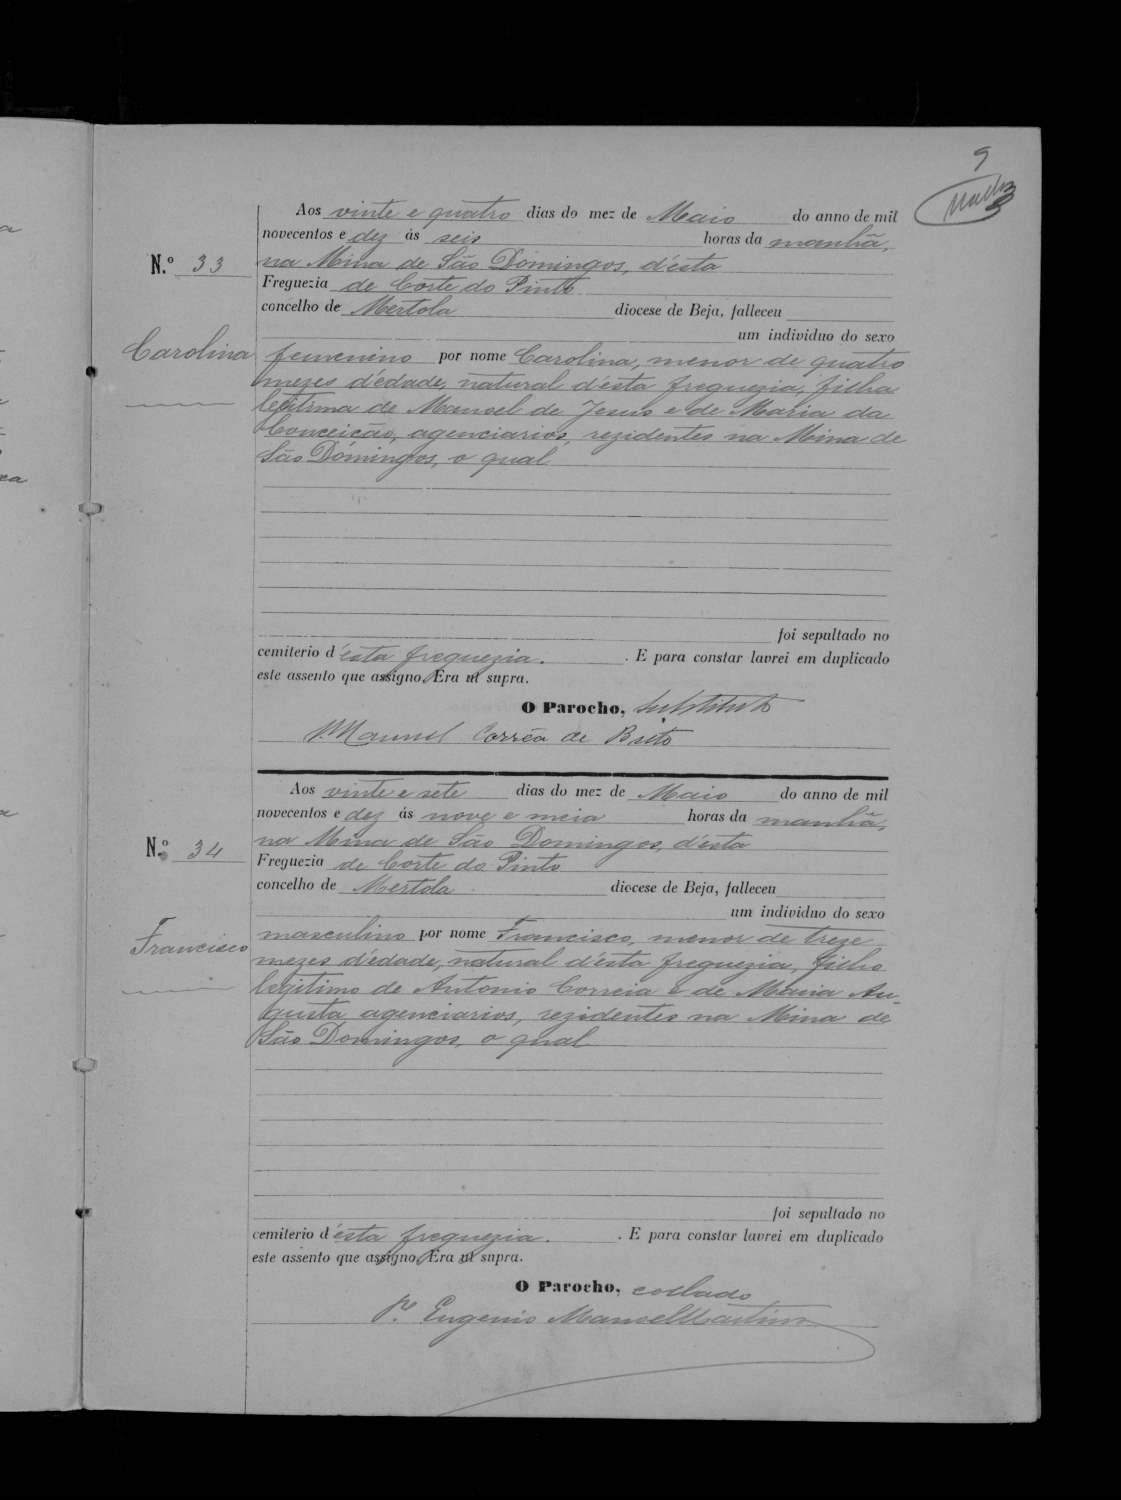 9
Aos vinte e quatro dias do mez de Maio do anno de mil
novecentos e dez ás seis horas da manhã,
N.º 33
na Mina de São Domingos, d'esta
Freguezia de Corte do Pinto
concelho de Mertola diocese de Beja, falleceu
um individuo do sexo
Carolina
femenino por nome Carolina, menor de quatro
mezes d'edade, natural d'esta freguezia, filha
legitima de Manoel de Jesus e de Maria da
Conceição, agenciarios, rezidentes na Mina de
São Domingos, o qual
foi sepultado no
cemiterio d'esta freguezia. E para constar lavrei em duplicado
este assento que assigno. Era ut supra.
O Parocho, substituto
P. Manuel Corrêa de Brito
Aos vinte e sete dias do mez de Maio do anno de mil
novecentos e dez ás nove e meia horas da manhã,
na Mina de São Domingos, d'esta
N.º 34
Freguezia de Corte do Pinto
concelho de Mertola diocese de Beja, falleceu
um individuo do sexo
Francisco
masculino por nome Francisco, menor de treze
mezes d'edade, natural d'esta freguezia, filho
legitimo de Antonio Correia e de Maria Au-
gusta agenciarios, rezidentes na Mina de
São Domingos, o qual
foi sepultado no
cemiterio d'esta freguezia. E para constar lavrei em duplicado
este assento que assigno. Era ut supra.
O Parocho, collado
P. Eugenio Manoel Martins